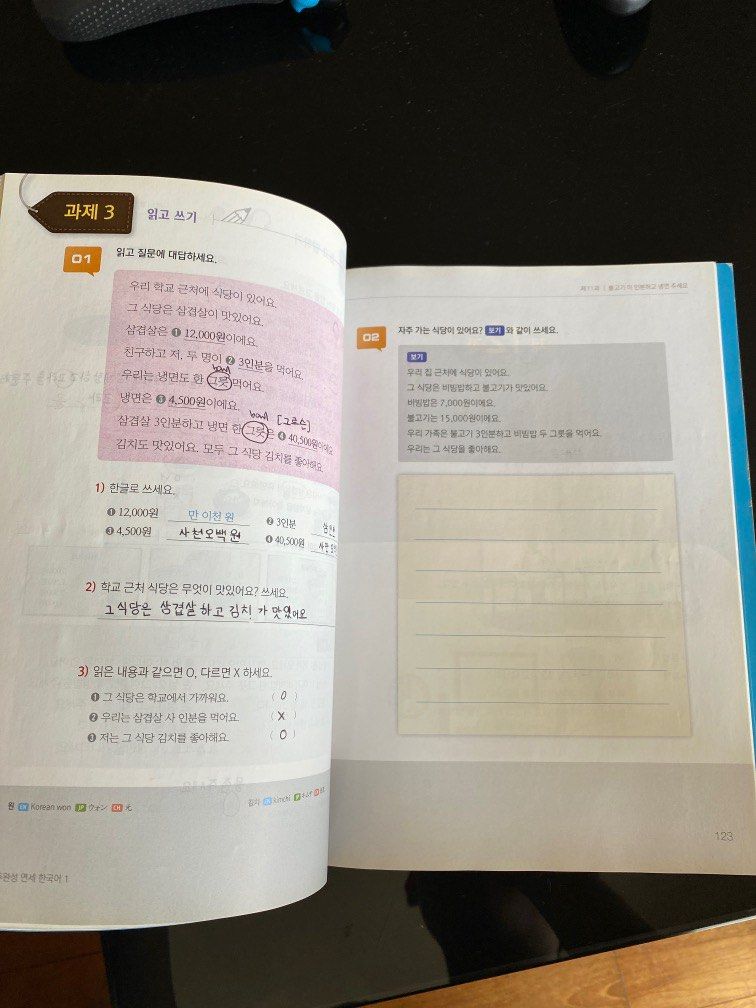 과제 3
읽고 쓰기
01
읽고 질문에 대답하세요.
우리 학교 근처에 식당이 있어요.
그 식당은 삼겹살이 맛있어요.
삼겹살은 ❶ 12,000원이에요.
친구하고 저, 두 명이 ❷ 3인분을 먹어요.
bowl
우리는 냉면도 한 그릇 먹어요.
냉면은 ❸ 4,500원이에요.
bowl
삼겹살 3인분하고 냉면 한 그릇은 ❹ 40,500원이에요.
김치도 맛있어요. 모두 그 식당 김치를 좋아해요.
1) 한글로 쓰세요.
❶ 12,000원 만 이천 원 ❷ 3인분
❸ 4,500원 사천오백 원 ❹ 40,500원
2) 학교 근처 식당은 무엇이 맛있어요? 쓰세요.
그식당은 삼겹살 하고 김치 가 맛있어요
3) 읽은 내용과 같으면 O, 다르면 X 하세요.
❶ 그 식당은 학교에서 가까워요. ( O )
❷ 우리는 삼겹살 사 인분을 먹어요. ( X )
❸ 저는 그 식당 김치를 좋아해요. ( O )
원 EN Korean won JP ウォン CH 元
김치 EN kimchi JP キムチ CH
완성 연세 한국어 1
제11과 | 불고기 이 인분하고 냉면 주세요
02
자주 가는 식당이 있어요? 보기 와 같이 쓰세요.
보기
우리 집 근처에 식당이 있어요.
그 식당은 비빔밥하고 불고기가 맛있어요.
비빔밥은 7,000원이에요.
불고기는 15,000원이에요.
우리 가족은 불고기 3인분하고 비빔밥 두 그릇을 먹어요.
우리는 그 식당을 좋아해요.
123